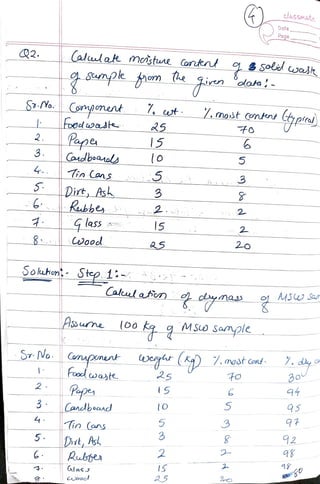 4
classmate
Date
Page
Q2. Calculate moisture content of solid waste
of sample from the given data:-
Sr.No. Component % wt. % moist content (typical)
1. Food waste 25 70
2. Paper 15 6
3. Cardboards 10 5
4. Tin Cans 5 3
5. Dirt, Ash 3 8
6. Rubber 2 2
7. Glass 15 2
8. Wood 25 20
Solution:- Step 1:-
Calculation of dry mass of MSW sam
Assume 100 Kg of MSW sample.
Sr.No. Component Weight (Kg) % moist cont. % dry
1. Food waste 25 70 30
2. Paper 15 6 94
3. Cardboard 10 5 95
4. Tin Cans 5 3 97
5. Dirt, Ash 3 8 92
6. Rubber 2 2 98
7. Glass 15 2 98
8. Wood 25 20 80